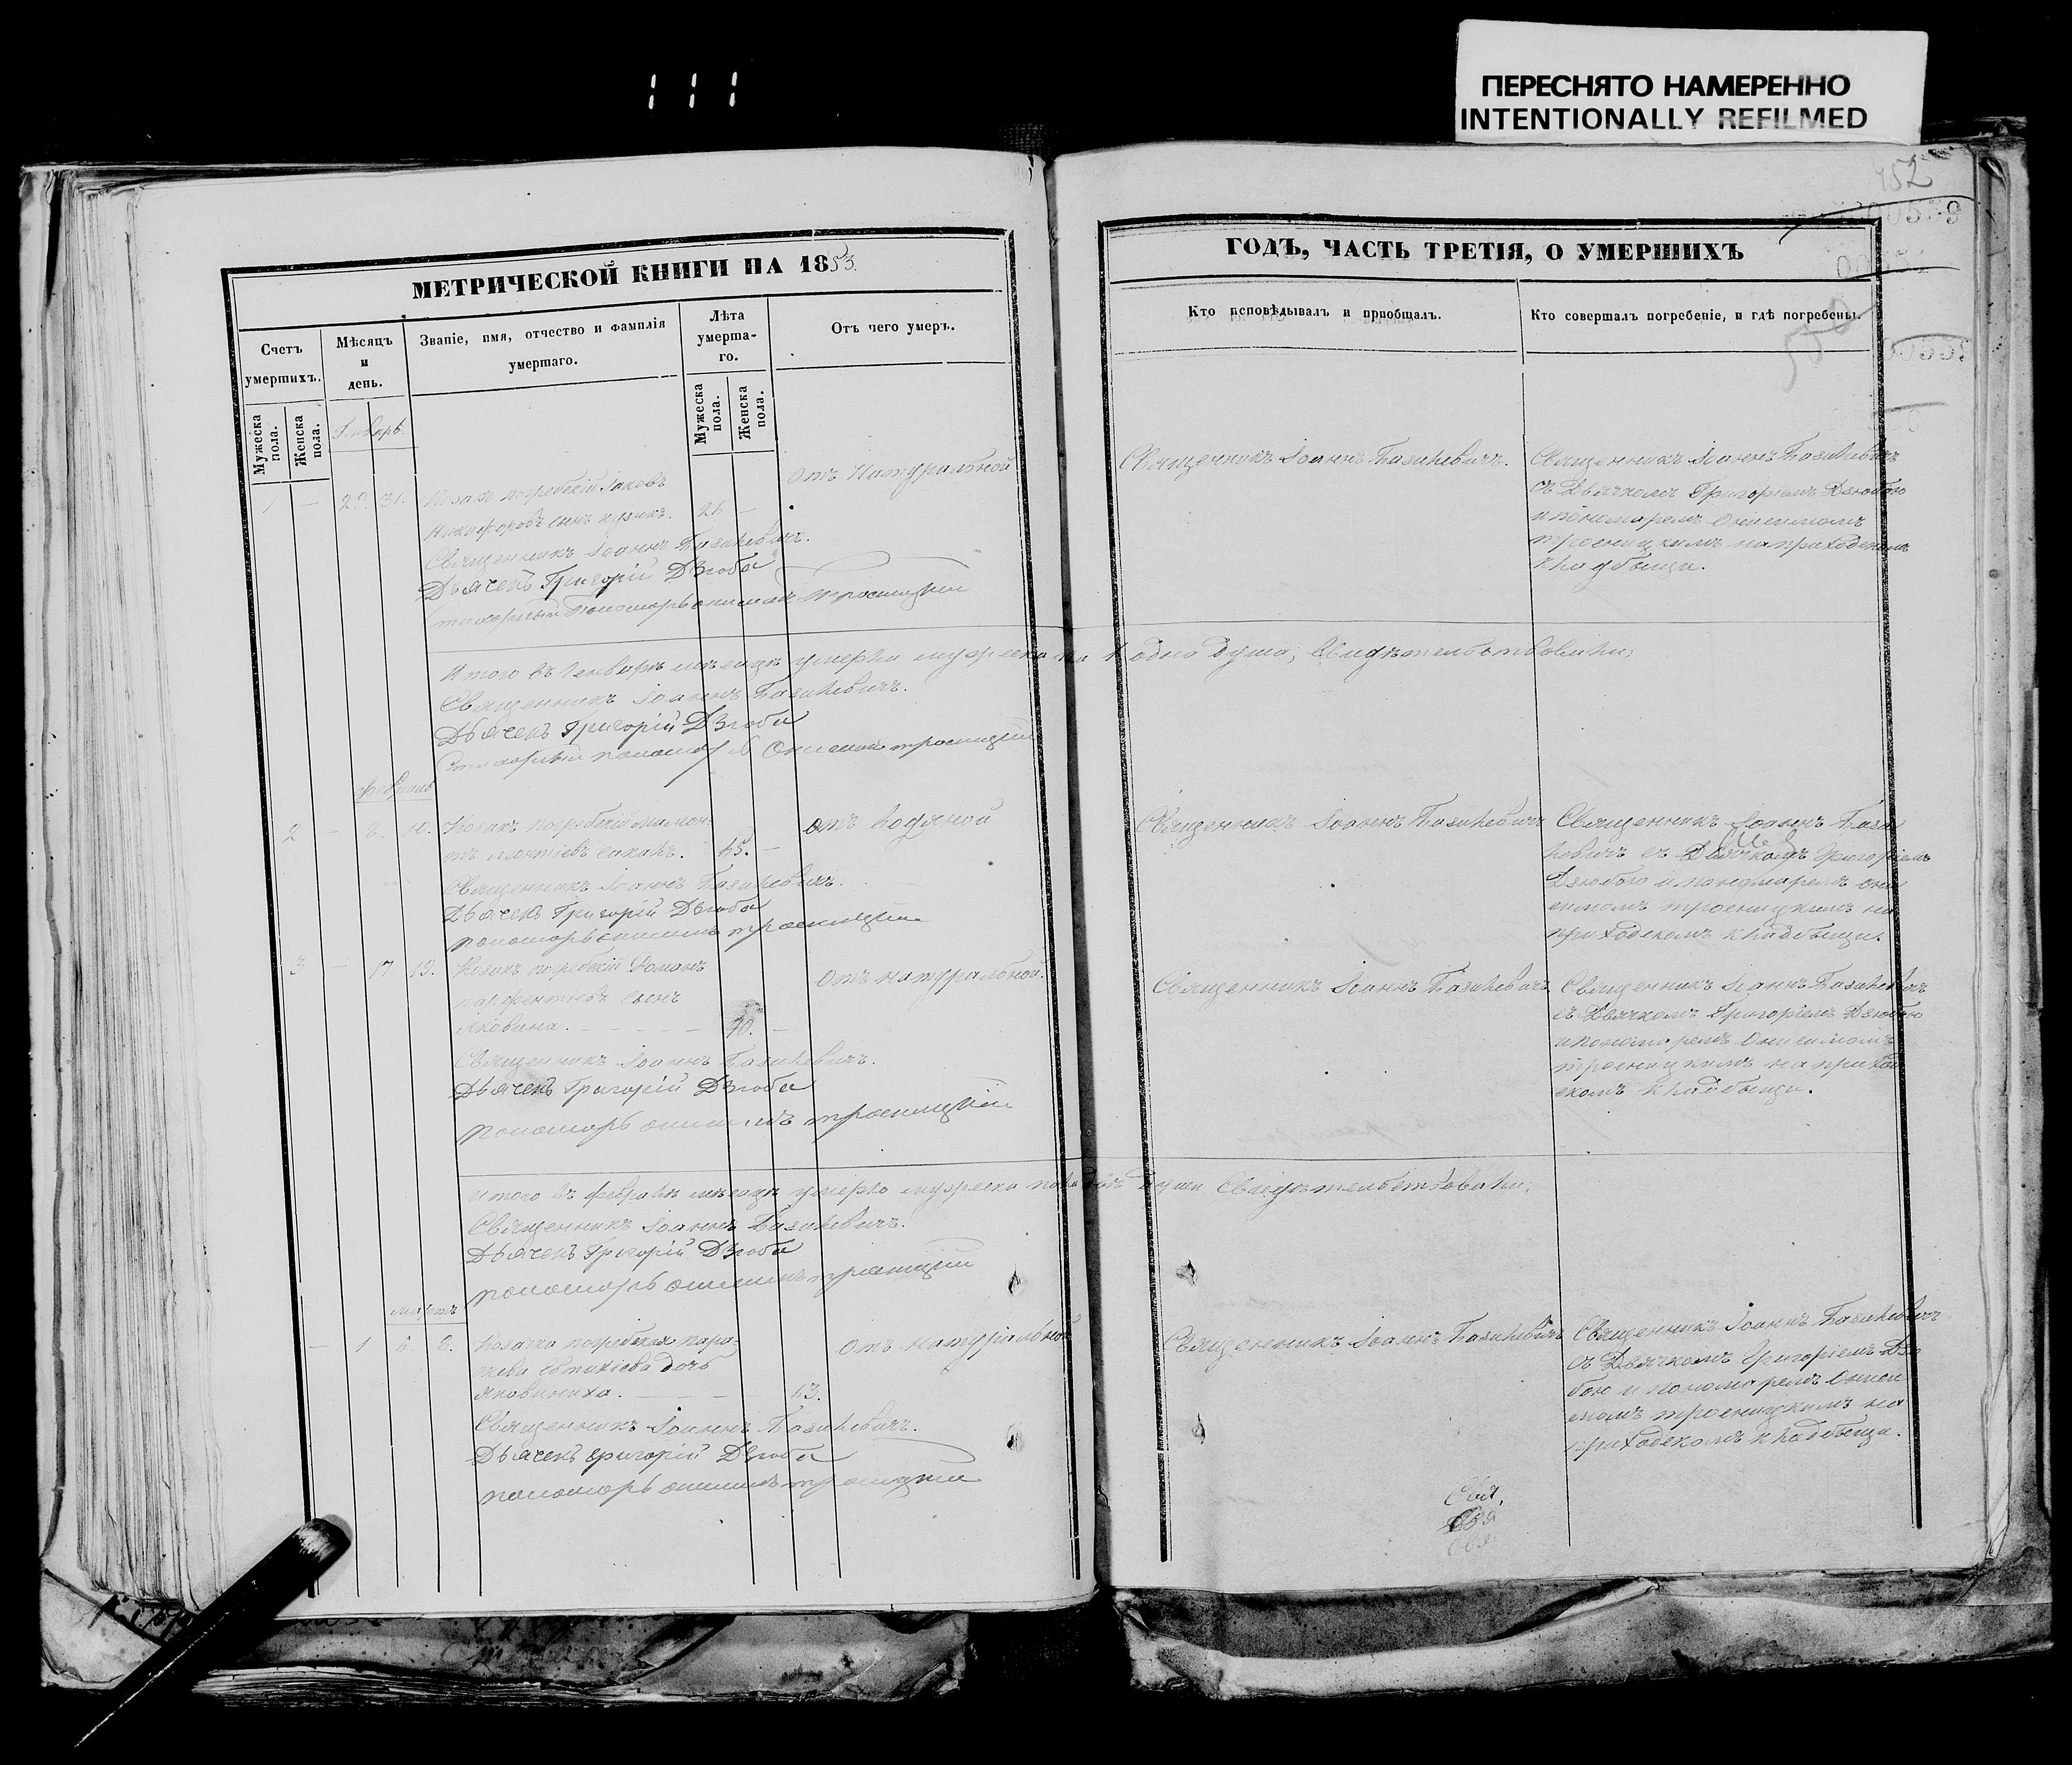 ПЕРЕСНЯТО НАМЕРЕННО
INTENTIONALLY REFILMED
452
МЕТРИЧЕСКОЙ КНИГИ НА 1853.
Счетъ умершихъ.
Мужеска пола.
Женска пола.
Мѣсяцъ и день.
Званіе, имя, отчество и фамилія умершаго.
Лѣта умерша-го.
Мужеска пола.
Женска пола.
Отъ чего умеръ.
ГОДЪ, ЧАСТЬ ТРЕТІЯ, О УМЕРШИХЪ
Кто исповѣдывалъ и пріобщалъ.
Кто совершалъ погребеніе, и гдѣ погребены.
1 — 29. 31. Козакъ погребскій Іаковъ
Никифоровъ сынъ
отъ Натуральной
Священникъ Іоаннъ Базилевичъ.
Дьячекъ Григорій Дзюба
Священникъ Іоаннъ Базилевичъ.
Священникъ Іоаннъ Базилевичъ
съ Дьячкомъ Григоріемъ Дзюбою
и пономаремъ Онисимомъ
троницкимъ на приходскомъ
кладбищи.
Итого въ Генварѣ мѣсяцѣ умерло мужеска по 1 одна душа, Свидѣтельствовали:
Священникъ Іоаннъ Базилевичъ.
Дьячекъ Григорій Дзюба
Стихарный пономарь Онисимъ троницкий
февраль
2 — 10. Козакъ погребскій
45. —
отъ водяной
Священникъ Іоаннъ Базилевичъ.
Дьячекъ Григорій Дзюба
пономарь онисимъ троницкий
Священникъ Іоаннъ Базилевичъ
Священникъ Іоаннъ Бази
левичъ съ Дьячкомъ Григоріемъ
Дзюбою и пономаремъ они
симомъ троницкимъ на
приходскомъ кладбищи.
3 — 17 19. Козакъ погребскій Романъ
парфентіевъ сынъ
Яковина. — 70. —
отъ натуральной.
Священникъ Іоаннъ Базилевичъ.
Дьячекъ Григорій Дзюба
пономарь онисимъ троницкий
Священникъ Іоаннъ Базилевичъ
Священникъ Іоаннъ Базилевичъ
съ Дьячкомъ Григоріемъ Дзюбою
и пономаремъ Онисимомъ
троницкимъ на приход
скомъ кладбищи.
Итого въ февралѣ мѣсяцѣ умерло мужеска пола двѣ души Свидѣтельствовали:
Священникъ Іоаннъ Базилевичъ.
Дьячекъ Григорій Дзюба
пономарь онисимъ троницкий
мартъ
— 1 6. 8. Козачка погребская пара-
скева Евтихіева дочь
Яковиниха. — 63.
отъ натуральной
Священникъ Іоаннъ Базилевичъ.
Дьячекъ григорій Дзюба
пономарь онисимъ троницкий
Священникъ Іоаннъ Базилевичъ
Священникъ Іоаннъ Базилевичъ
съ Дьячкомъ Григоріемъ Дзю
бою и пономаремъ Ониси
момъ троницкимъ на
приходскомъ кладбищи.